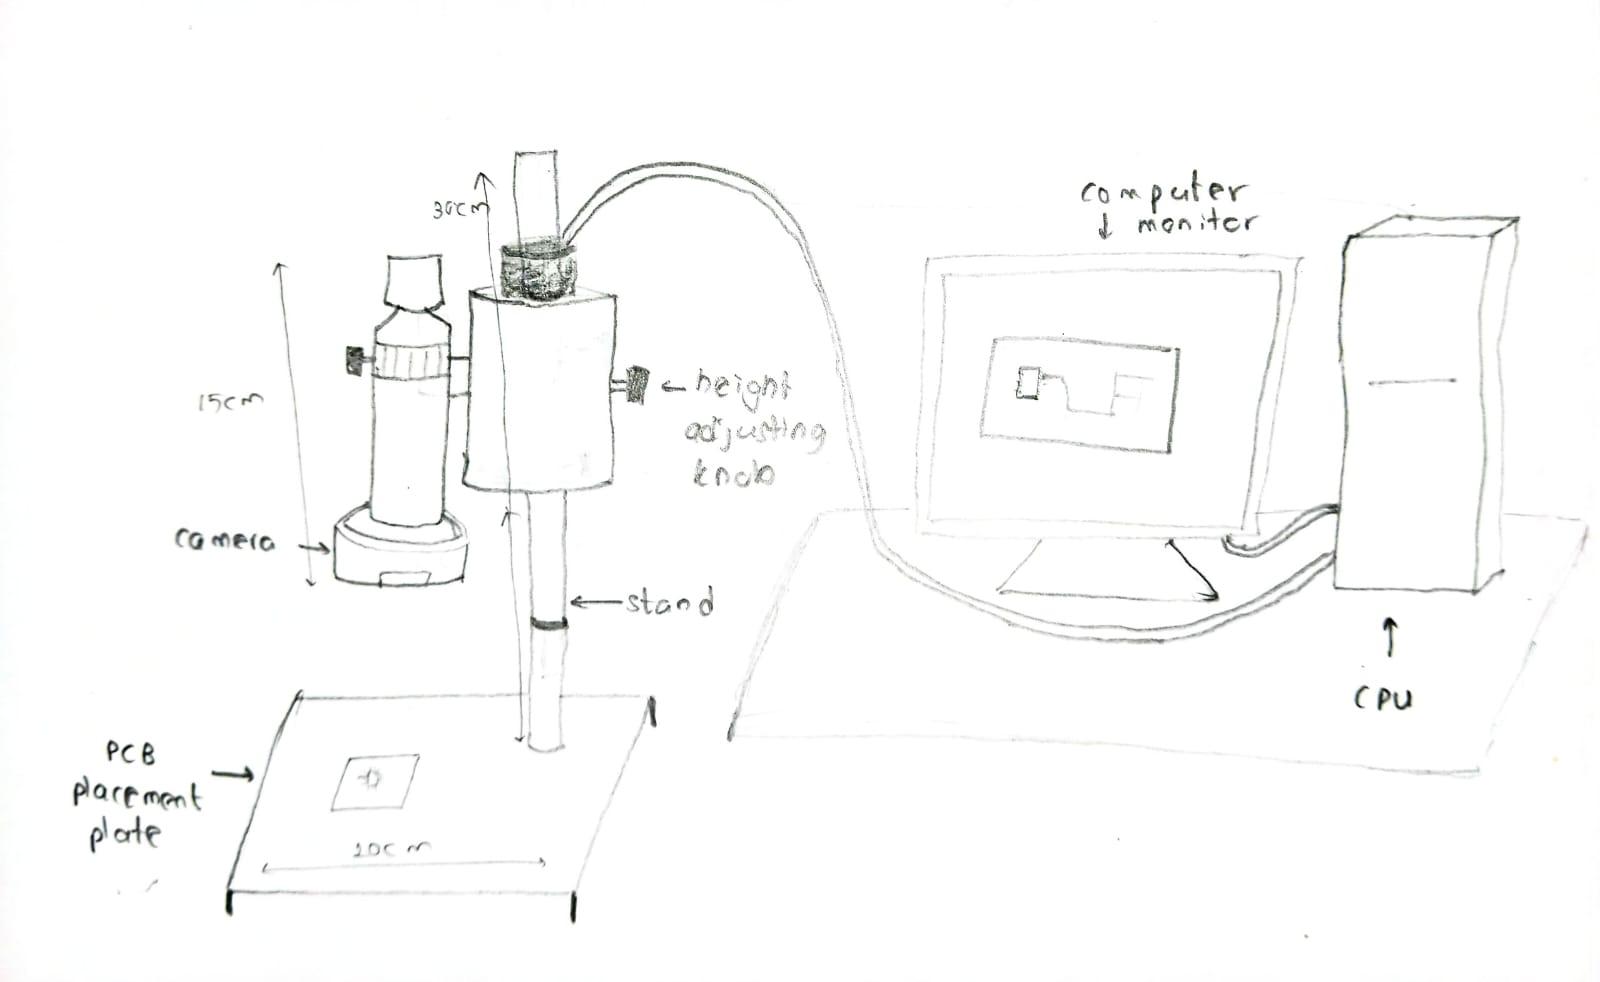 30cm
computer
monitor
15cm
height
adjusting
knob
camera
stand
CPU
PCB
placement
plate
20cm